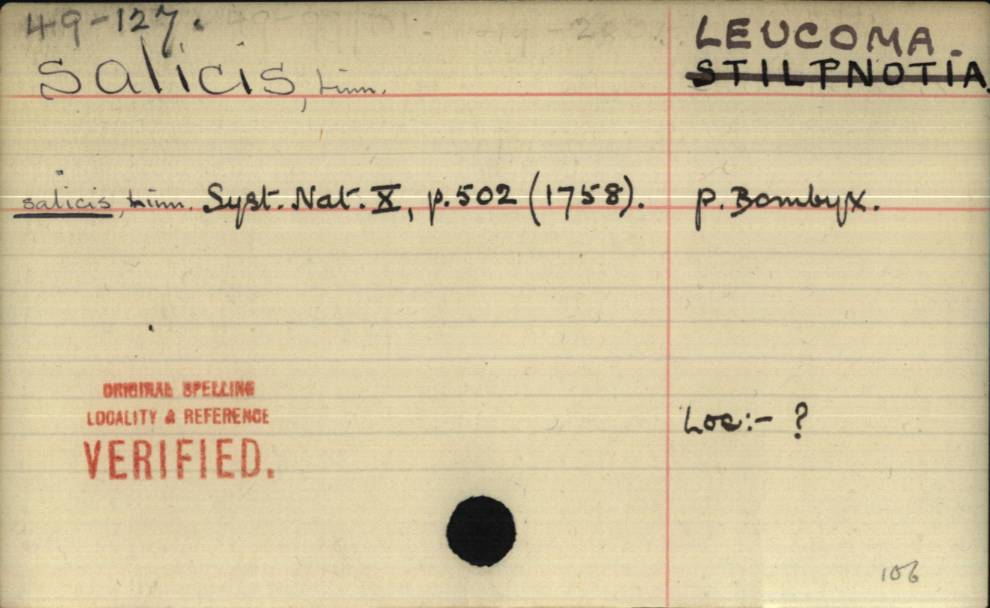 49-127.
LEUCOMA.
salicis, Linn.
STILPNOTIA.
salicis, Linn. Syst. Nat. X, p. 502 (1758). p. Bombyx.
ORIGINAL SPELLING
LOCALITY & REFERENCE
VERIFIED.
Loc:- ?
106